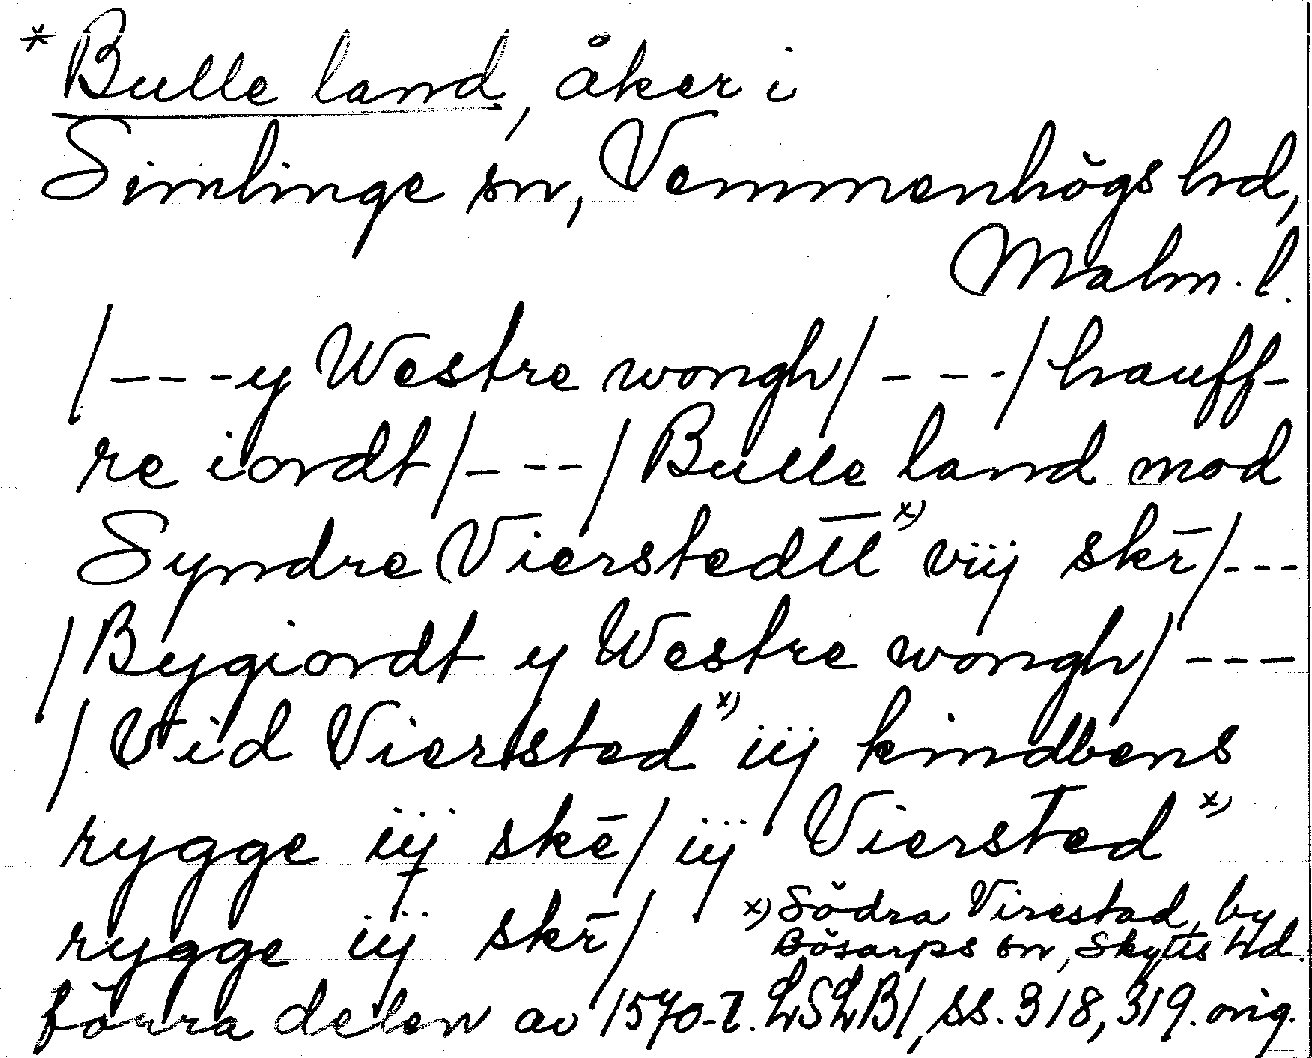 * Bulle land, åker i
Simlinge sn, Vemmenhögs hd,
Malm. l.
/---y Westre wongh/---/hauff-
re iordt/---/Bulle land mod
Syndre Vierstedtt x) viij skr̄/---
/Bygiordt y Westre wongh/---
/Vid Vierstad x) iij kindbens
rygge iij skē/ iij Viersted x)
rygge iij skr̄/
x) Södra Virestad, by
Bösarps sn, Skytts hd.
förra delen av 1570-t. LSLB1, ss. 318, 319. orig.